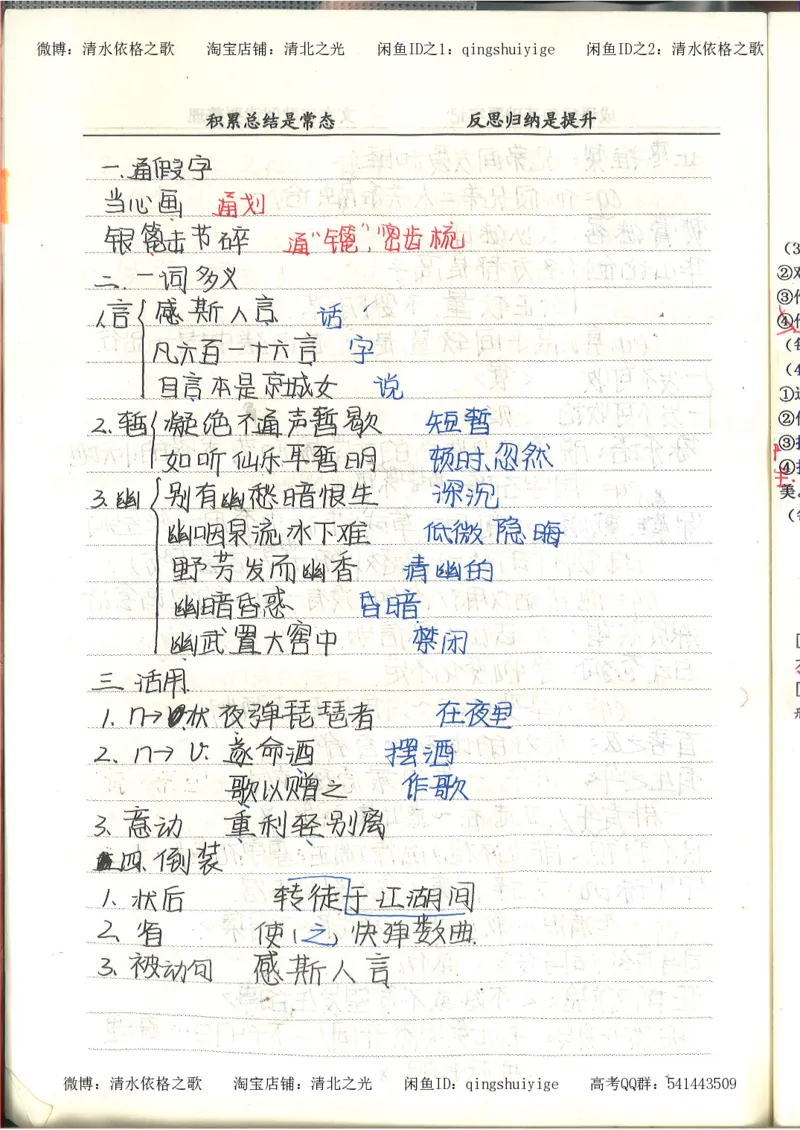 微博：清水依格之歌 淘宝店铺：清北之光 闲鱼ID之1：qingshuiyige 闲鱼ID之2：清水依格之歌
积累总结是常态 反思归纳是提升
一.通假字
当心画 通划
银篦击节碎 通“鎞”,密齿梳
二.一词多义
1.言 感斯人言 话
凡六百一十六言 字
自言本是京城女 说
2.暂 凝绝不通声暂歇 短暂
如听仙乐耳暂明 顿时、忽然
3.幽 别有幽愁暗恨生 深沉
幽咽泉流冰下难 低微隐晦
野芳发而幽香 清幽的
幽暗昏惑 昏暗
幽武置大窖中 禁闭
三.活用
1. n→状 夜弹琵琶者 在夜里
2. n→v: 遂命酒 摆酒
歌以赠之 作歌
3.意动 重利轻别离
四.倒装
1.状后 转徙于江湖间
2.省 使(之)快弹数曲.
3.被动句 感斯人言
微博：清水依格之歌 淘宝店铺：清北之光 闲鱼ID：qingshuiyige 高考QQ群：541443509